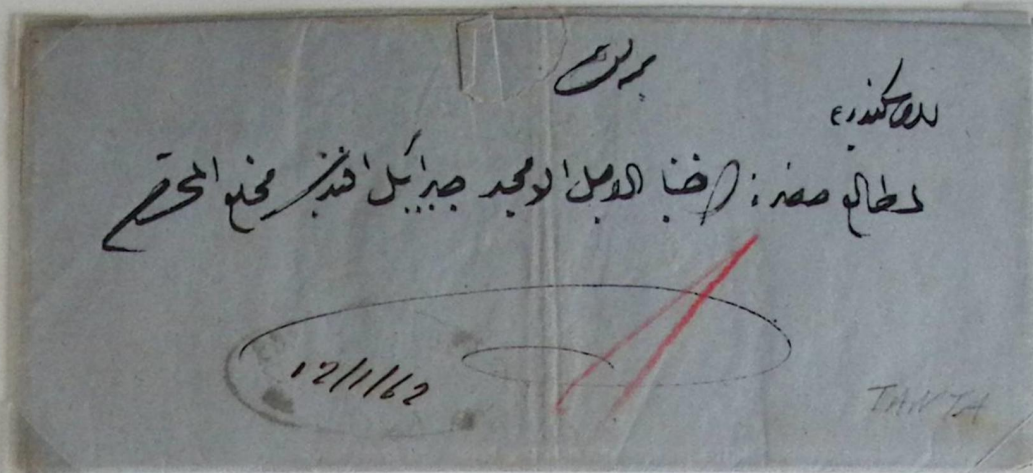 للاسكندريه
لمطالع حضرة جناب الاجل الامجد جبرائيل افندي مخلع المحترم
12/1/62
TANTA